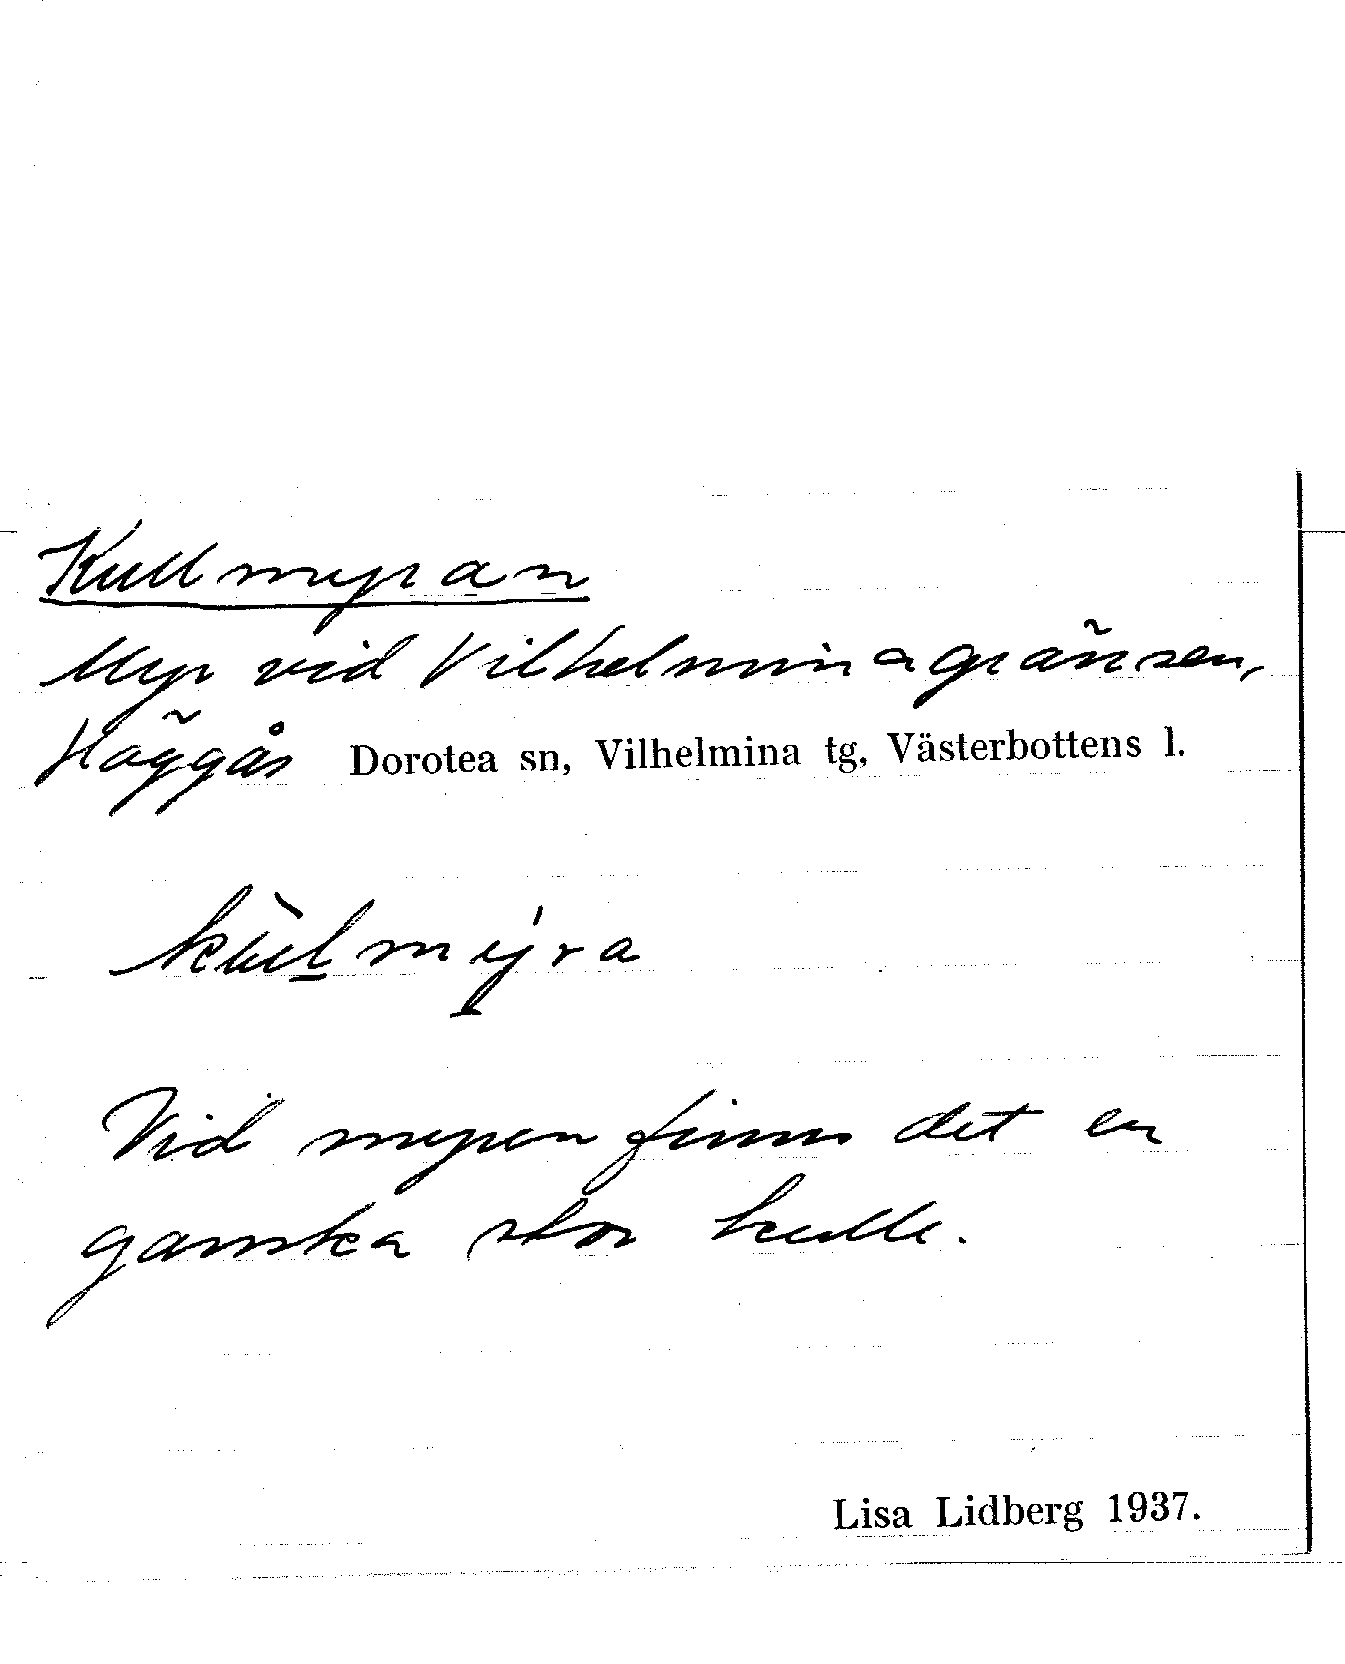 Kullmyran
Myr vid Vilhelminagränsen,
Häggås Dorotea sn, Vilhelmina tg, Västerbottens l.
kùl̲mýra
Vid myren finns det en
ganska stor kulle.
Lisa Lidberg 1937.